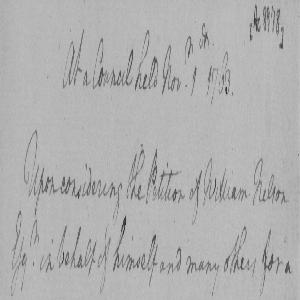 At a Council held Novr 1st 1733.
Upon considering the Petition of William Nelson
Esqr. in behalf of himself and many others for a